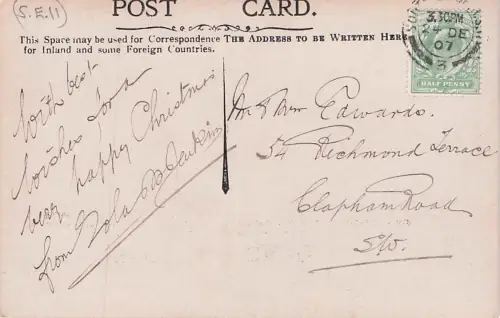 S.E.11
POST CARD.
This Space may be used for Correspondence
for Inland and some Foreign Countries.
THE ADDRESS TO BE WRITTEN HERE
3.30PM
DE
07
3
HALF PENNY
With best
wishes for a
very happy Christmas
from Lola
Mr & Mrs Edwards.
54 Richmond Terrace
Clapham Road
S.W.